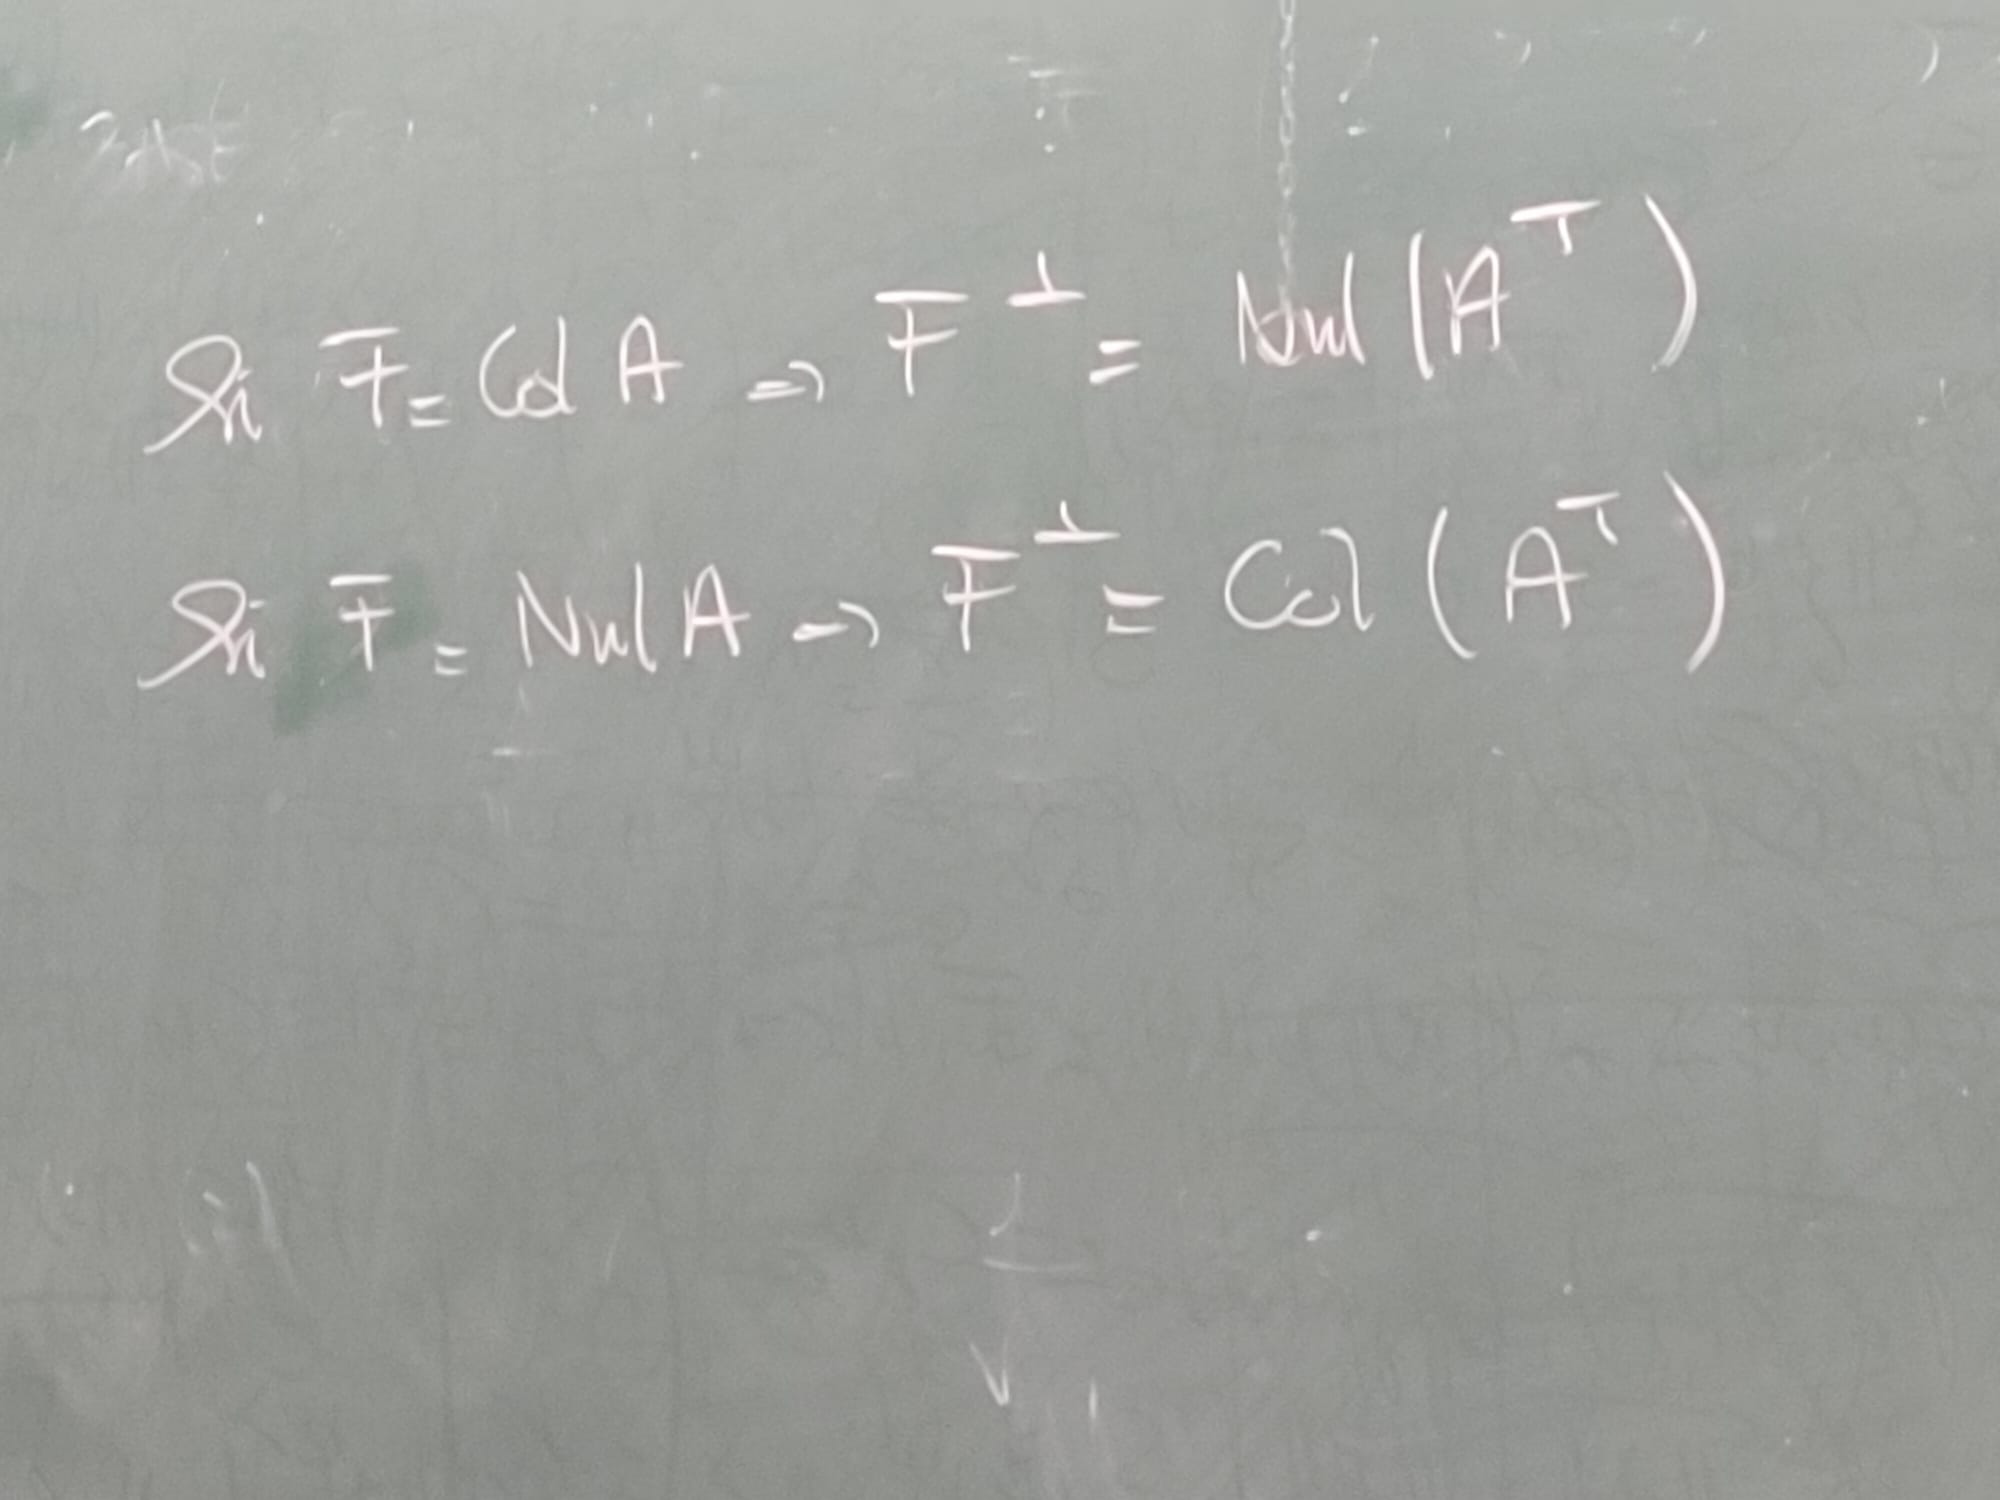 Si F = Col A => F^⊥ = Nul (A^T)
Si F = Nul A => F^⊥ = Col (A^T)